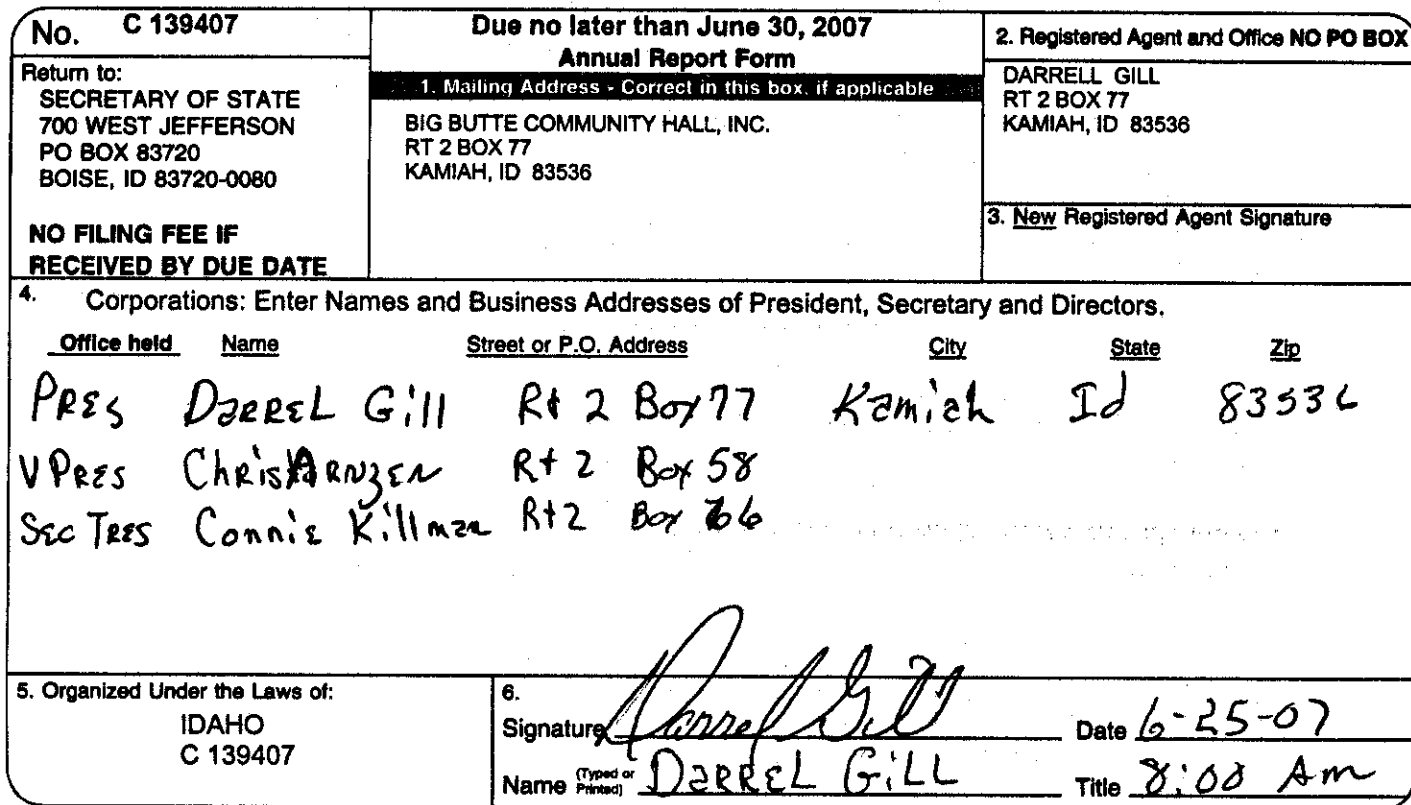 No. C 139407
Return to:
SECRETARY OF STATE
700 WEST JEFFERSON
PO BOX 83720
BOISE, ID 83720-0080
NO FILING FEE IF
RECEIVED BY DUE DATE
Due no later than June 30, 2007
Annual Report Form
1. Mailing Address - Correct in this box, if applicable
BIG BUTTE COMMUNITY HALL, INC.
RT 2 BOX 77
KAMIAH, ID 83536
2. Registered Agent and Office NO PO BOX
DARRELL GILL
RT 2 BOX 77
KAMIAH, ID 83536
3. New Registered Agent Signature
4. Corporations: Enter Names and Business Addresses of President, Secretary and Directors.
Office held Name Street or P.O. Address City State Zip
PRES DARREL Gill Rt 2 Box 77 Kamiah Id 83536
V PRES ChRis ARNZEN Rt 2 Box 58
Sec TRES Connie Killman Rt 2 Box 66
5. Organized Under the Laws of:
IDAHO
C 139407
6.
Signature Darrel Gill Date 6-25-07
Name (Typed or Printed) DARREL GiLL Title 8:00 Am